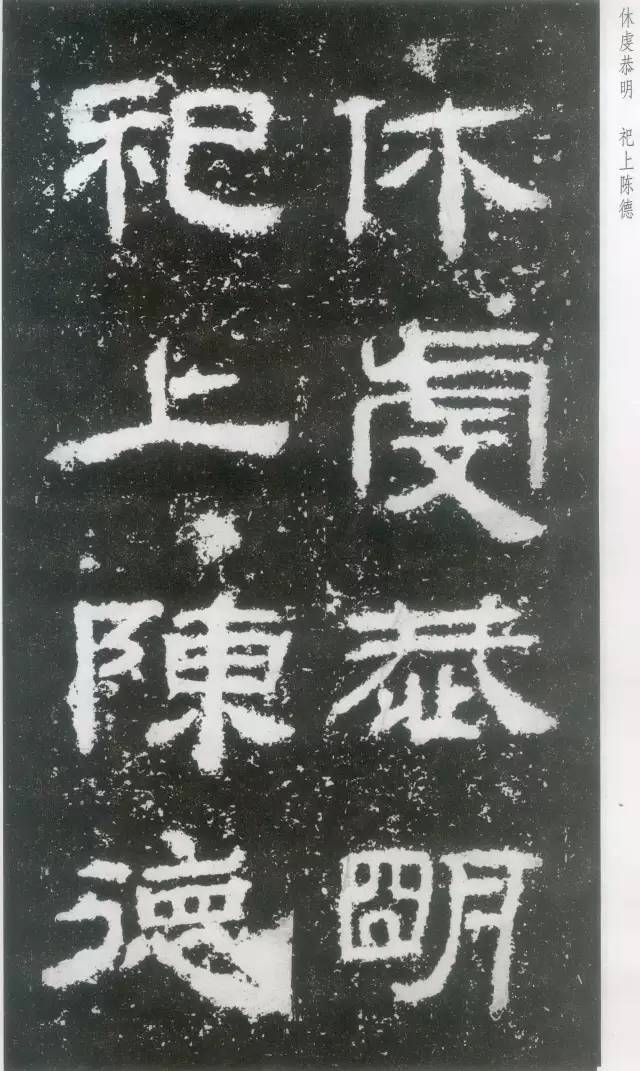 休虔恭明 祀上陈德
休虔恭明
祀上陳德